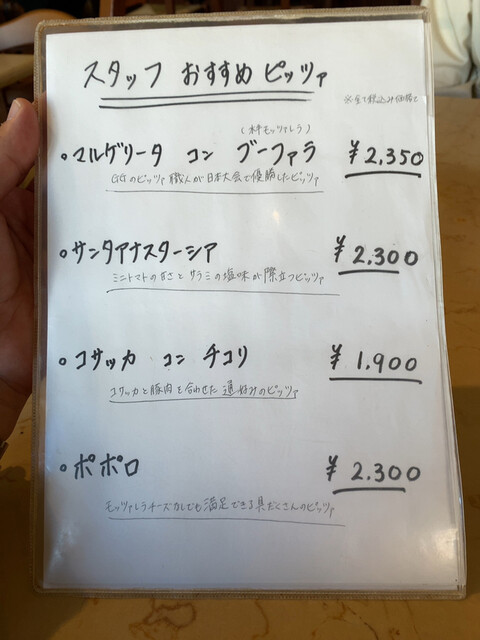 スタッフ おすすめ ピッツァ
※全て税込み価格で
(水牛モッツァレラ)
・マルゲリータ コン ブーファラ ¥2,350
GGのピッツァ職人が日本大会で優勝したピッツァ
・サンタアナスターシア ¥2.300
ミニトマトの甘さとサラミの塩味が際立つピッツァ
・コサッカ コン チコリ ¥1.900
コサッカと豚肉を合わせた通好みのピッツァ
・ポポロ ¥2.300
モッツァレラチーズなしでも満足できる具だくさんのピッツァ